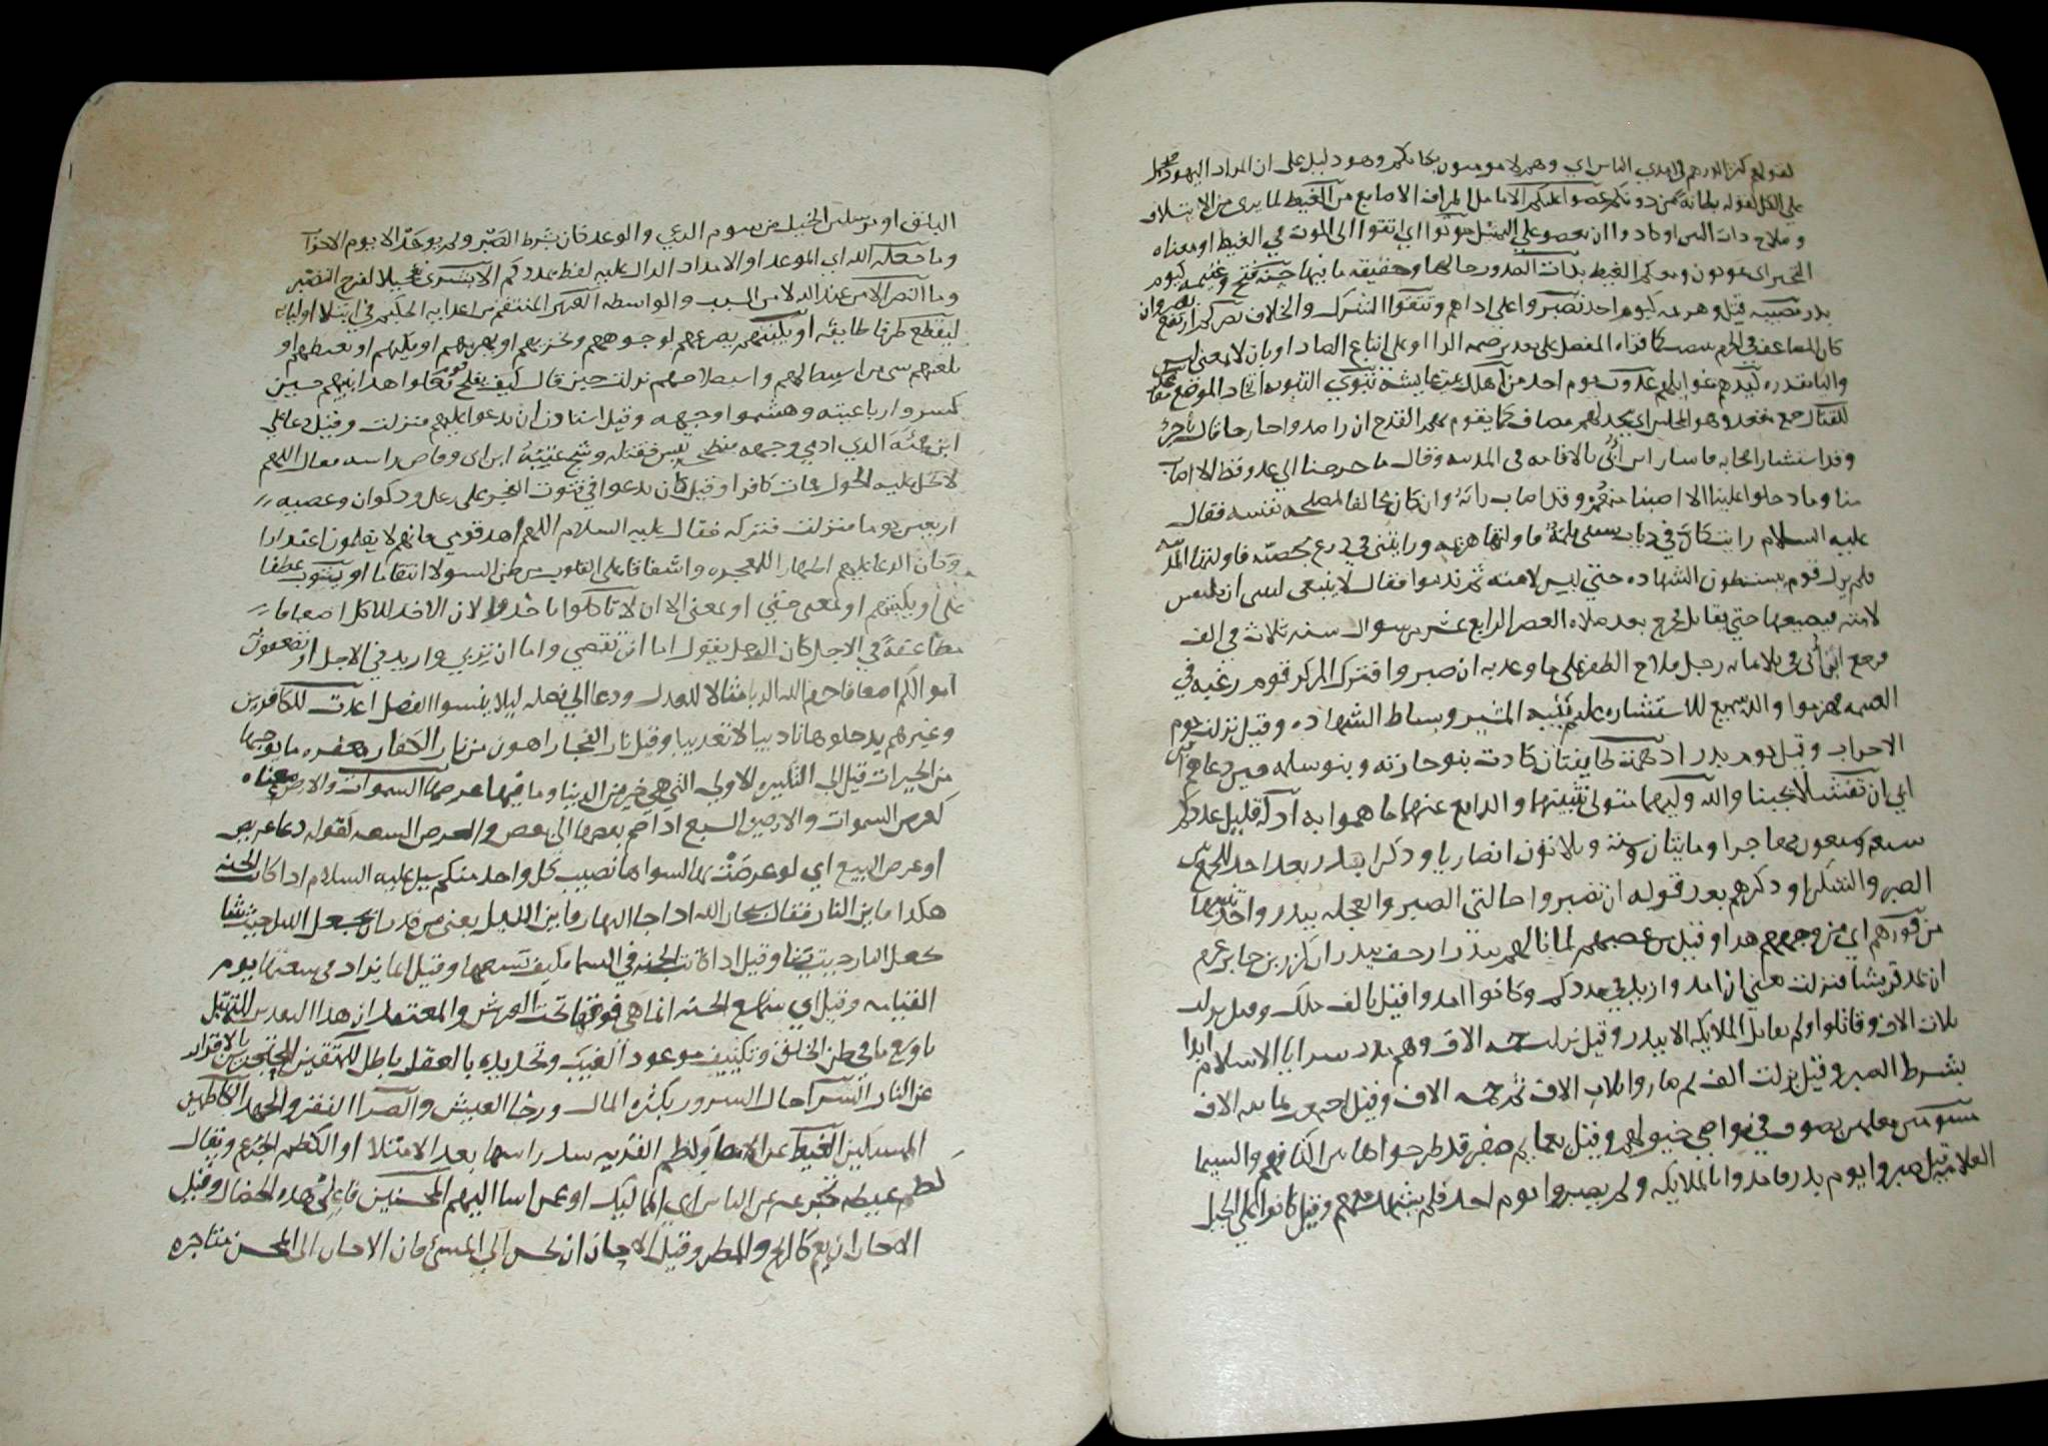 لقوله كثر الدرهم في ايدي الناس اي وهم لا يومنون بكتابكم وهو دليل على ان المراد اليهود
على الكل لقوله بطانة من دونكم عضوا عليكم الانامل اطراف الاصابع من الغيظ لما يرى من الايتلاف
وصلاح ذات البين او كادوا ان يعضوا على المثل موتوا اي ابقوا الى الموت في الغيظ او معناه
الخبر اي تموتون وبكم الغيظ بذات الصدور حالها وحقيقة ما فيها حسنة فتح وغنيمة كيوم
بدر مصيبة قتل وهزيمة كيوم احد تصبروا على اذاهم وتتقوا الشرك والخلاف
كقراءة المفضل على تقدير ضمة الرا او على اتباع الضاد او بان لا بمعنى ليس
يوم احد من اهلك بيت عايشة تبوي التبوية اتخاذ الموضع
للقتال جمع مقعد وهو المجلس اي يعد لهم مصاف كما يقوم بهم القدح ان راى صدرا خارجا قال تاخر
وقد استشار اصحابه فاشار ابن ابي بالاقامة في المدينة وقال ما خرجنا الى عدو قط الا اصاب
منا وما دخلوا علينا الا اصبنا منهم وقد اصاب رايه وان كان مخالفا لمصلحة نفسه فقال
عليه السلام رايت كان في ذباب سيفي ثلمة فاولتها هزيمة ورايتني في درع حصينة فاولتها المدينة
فلم يزل قوم ينشطون الشهادة حتى لبس لامته ثم ندموا فقال لا ينبغي لنبي ان يلبس
لامته فيضعها حتى يقاتل فخرج بعد صلاة العصر الرابع عشر من شوال سنة ثلاث في الف
فرجع ابن ابي في ثلاثماية رجل فلاح الظفر على ما وعد به ان صبروا فترك المركز قوم رغبة في
الغنيمة فهزموا والله سميع للاستشارة عليم بنية المشير ونشاط الشهادة وقيل نزلت يوم
الاحزاب وقيل يوم بدر اذ همت طايفتان كادت بنو حارثة وبنو سلمة حين دعاهم
ابي ان تفشلا تجبنا والله وليهما متولي تثبيتهما والدافع عنهما ما هموا به اذلة قليل عددكم
سبعة وسبعون مهاجرا ومايتان وستة وثلاثون انصاريا وذكر بدر بعد احد للجمع بين
الصبر والشكر او ذكرهم بعد قوله ان تصبروا حالتي الصبر والعجلة ببدر واحد
من فورهم اي من وجههم هذا وقيل من غضبهم لما نالهم ببدر ان كرز بن جابر عزم
ان يمد قريشا فنزلت يعني ان امد وازيد في مددكم وكانوا امدوا قيل بالف ملك
ثلاث الاف وقاتلوا ولم يقاتل الملايكة الا ببدر وقيل نزلت خمسة الاف وهم مدد سرايا الاسلام ابدا
بشرط الصبر وقيل نزلت الف ثم صاروا ثلاث الاف ثم خمسة الاف وقيل اجتمع ثمانية الاف
مسومين معلمين بصوف في نواصي خيولهم وقيل بعمايم صفر قد طرحوها بين اكتافهم والسيما
العلامة قيل صبروا يوم بدر فامدوا بالملايكة ولم يصبروا يوم احد فلم يمدوا وقيل كانوا على الخيل
البلق او مرسلين الخيل من سوم الرعي والوعد كان بشرط الصبر ولم يوجد الا يوم الاحزاب
وما جعله الله اي الموعد او الامداد الدال عليه لفظ يمددكم الا بشرى تعجيلا لفرح النصر
وما النصر الا من عند الله لا من السبب والواسطة العزيز المنتقم من اعدايه الحكيم في ابتلا اوليايه
ليقطع طرفا طايفة او يكبتهم يصرعهم لوجوههم ويخزيهم او يهزمهم او يكبدهم او يغيظهم او
يلعنهم نزلت حين قال كيف يفلح قوم فعلوا هذا بنبيهم حين
كسروا رباعيته وهشموا وجهه وقيل استاذن ان يدعو عليهم فنزلت وقيل دعا على
ابن قمئة الذي ادمى وجهه فنطحه تيس فقتله وشج عتبة ابن ابي وقاص راسه فقال اللهم
لا تحل عليه الحول فمات كافرا وقيل كان يدعو في قنوت الفجر على رعل وذكوان وعصية
اربعين يوما فنزلت فتركه فقال عليه السلام اللهم اهد قومي فانهم لا يعلمون اعتذارا
وكان الدعا عليهم اظهارا للمعجزة واشفاقا على القلوب من ظن السو لا انتقاما او يتوب عطفا
على او يكبتهم او بمعنى حتى او بمعنى الا ان لا تاكلوا تاخذوا لان الاخذ للاكل اضعافا
مضاعفة في الاجل كان الرجل يقول اما ان تقضي واما ان تربي وازيد في الاجل او تضعفون
اموالكم اضعافا حرم الله الربا مثالا للعدل ودعا الى فعله ليلا ينسوا الفضل اعدت للكافرين
وغيرهم يدخلوها تاديبا لا تعذيبا وقيل نار الفجار اهون من نار الكفار مغفرة ما يوجبها
من الخيرات قيل الى التكبيرة الاولى التي هي خير من الدنيا وما فيها عرضها السموات والارض معناه
كعرض السموات والارضين السبع اذا ضم بعضها الى بعض والعرض السعة لقوله دعا عريض
او عرض البيع اي لو عرضت بها لتسوا ما نصيب كل واحد منكم سيل عليه السلام اذا كان الجنة
هكذا فاين النار فقال سبحان الله اذا جا النهار فاين الليل يعني من قدر ان يجعل الليل حيث شا
يجعل النار حيث شا وقيل اذا كانت الجنة في السما فكيف تسعها وقيل انما يزاد في سعتها يوم
القيامة وقيل اي نعم الجنة انما هي فوقها تحت العرش والمعتمد ان هذا
باوسع ما في ظن الخلق وتكييف موعود الغيب وتحديده بالعقل باطل للمتقين المحتجزين بالاقرار
عن النار السرا حال السرور بكثرة المال ورخا العيش والضرا الفقر والجهد الكاظمين
الممسكين الغيظ عن الامضا وكظم القربة سد راسها بعد الامتلا او الكظم الجزع ويقال
كظم غيظه تجرعه عن الناس اي المماليك او عمن اسا اليهم المحسنين فاعلي هذه الخصال وقيل
الاحسان ان يعم كالريح والمطر وقيل الاحسان ان تحسن الى المسئ فان الاحسان الى المحسن متاجرة